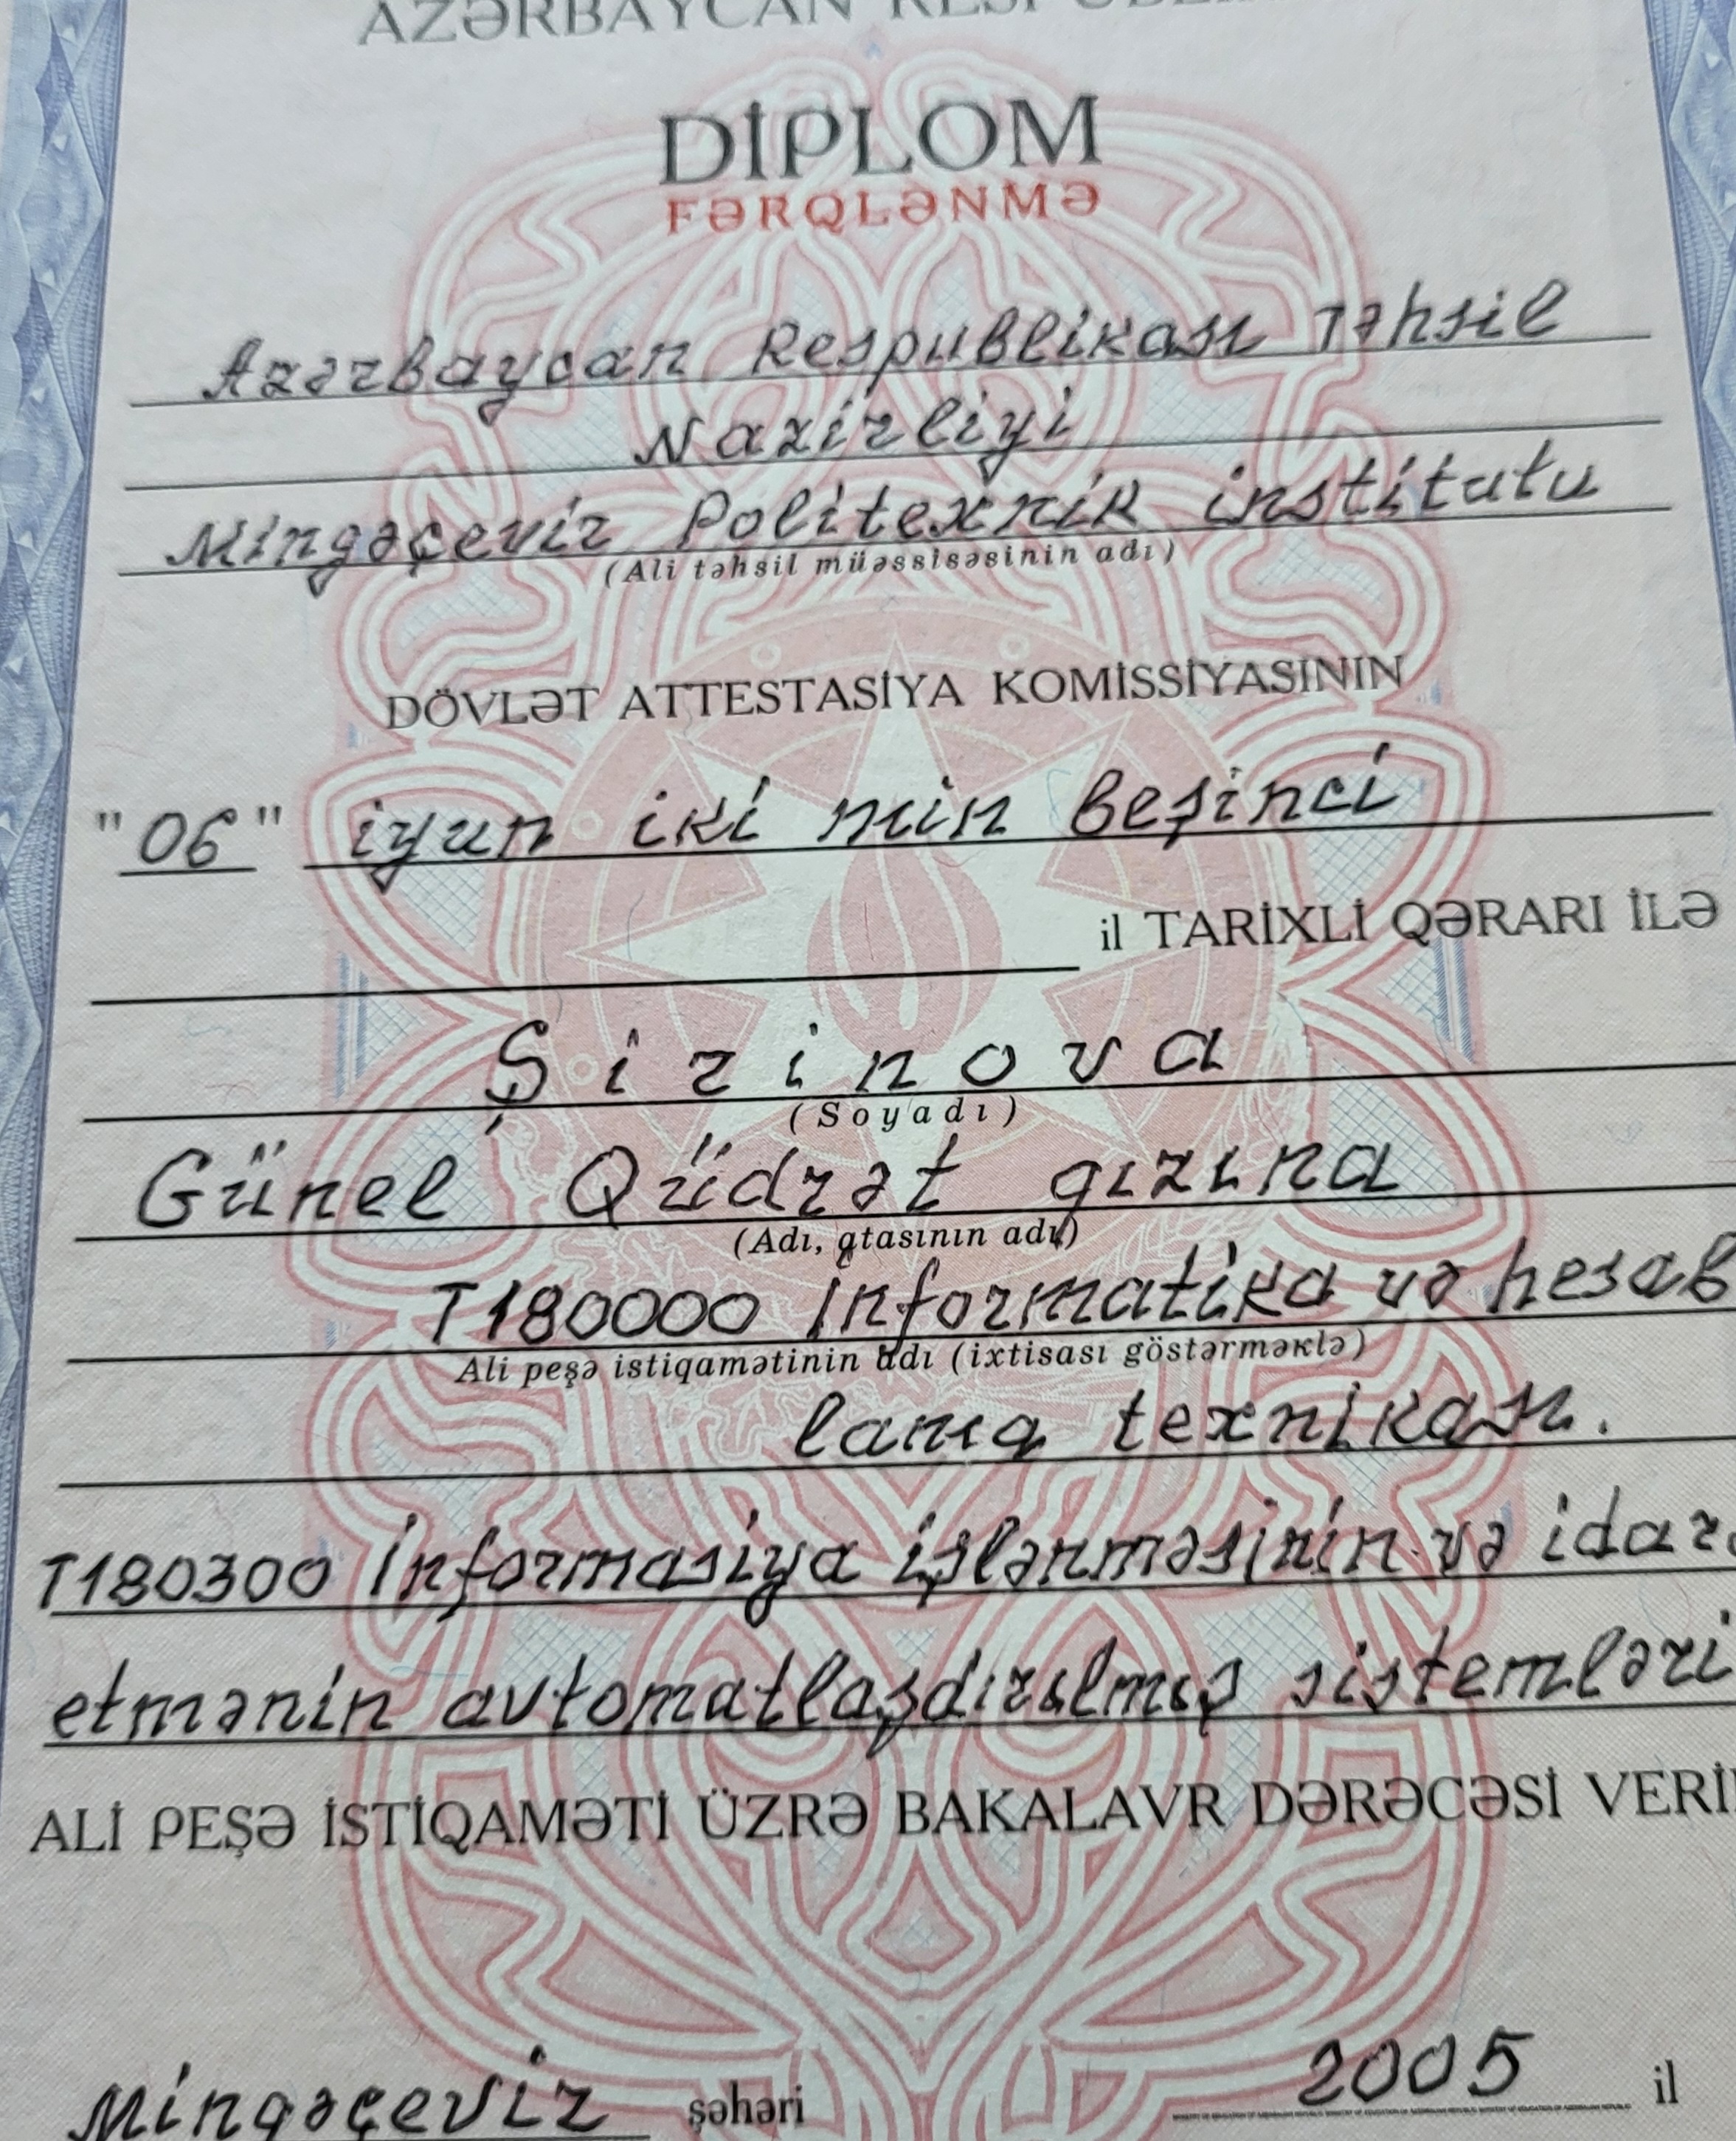 AZƏRBAYCAN
DİPLOM
FƏRQLƏNMƏ
Azərbaycan Respublikası Təhsil
Nazirliyi
Mingəçevir Politexnik institutu
(Ali təhsil müəssisəsinin adı)
DÖVLƏT ATTESTASİYA KOMİSSİYASININ
"06" iyun iki min beşinci
il TARİXLİ QƏRARI İLƏ
Şirinova
(Soyadı)
Günel Qüdrət qızına
(Adı, atasının adı)
T180000 İnformatika və hesab
Ali peşə istiqamətinin adı (ixtisası göstərməklə)
lama texnikası.
T180300 İnformasiya işlənməsinin və idarə
etmənin avtomatlaşdırılmış sistemləri
ALİ PEŞƏ İSTİQAMƏTİ ÜZRƏ BAKALAVR DƏRƏCƏSİ
Mingəçevir şəhəri 2005 il